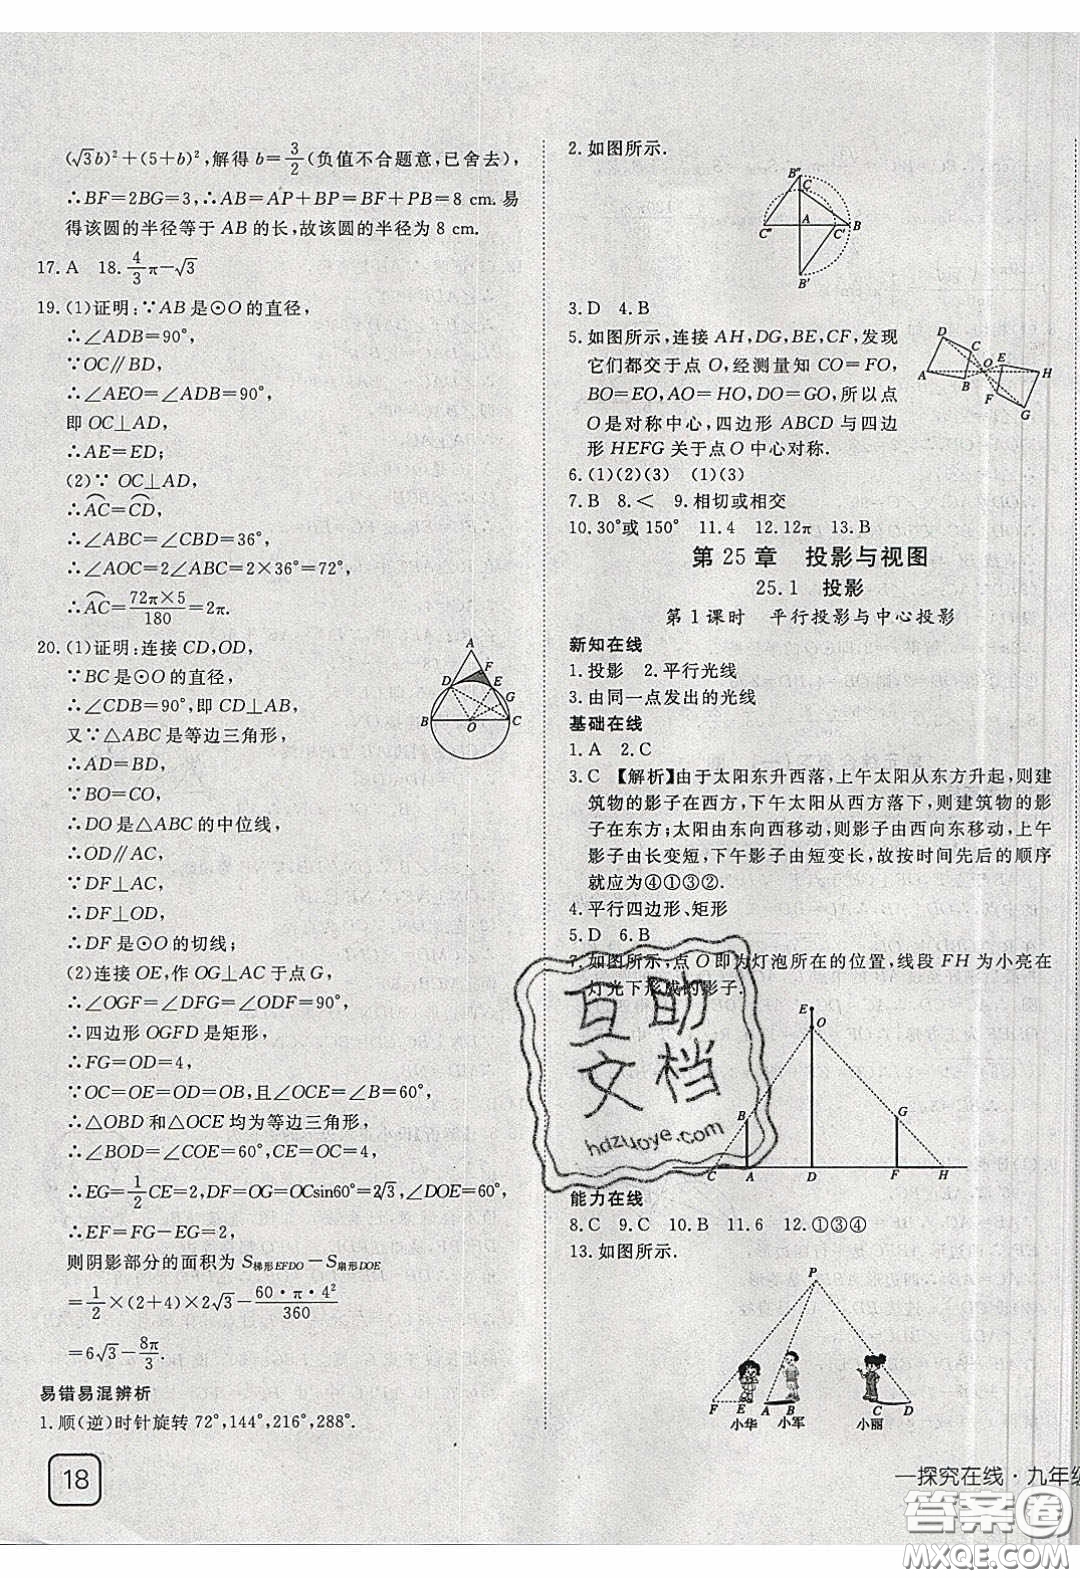 (√3b)²+(5+b)²,解得 b=3/2(负值不合题意,已舍去),
∴BF=2BG=3,∴AB=AP+BP=BF+BP=8 cm.易
得该圆的半径等于 AB 的长,故该圆的半径为 8 cm.
17.A 18.4/3π-√3
19.(1)证明:∵AB是⊙O的直径,
∴∠ADB=90°,
∵OC∥BD,
∴∠AEO=∠ADB=90°,
即 OC⊥AD,
∴AE=ED;
(2)∵ OC⊥AD,
∴AC=CD,
∴∠ABC=∠CBD=36°,
∴∠AOC=2∠ABC=2×36°=72°,
∴AC=72π×5/180=2π.
20.(1)证明:连接 CD,OD,
∵BC是⊙O的直径,
∴∠CDB=90°,即 CD⊥AB,
又∵△ABC是等边三角形,
∴AD=BD,
∵BO=CO,
∴DO是△ABC的中位线,
∴OD∥AC,
∵DF⊥AC,
∴DF⊥OD,
∴DF是⊙O的切线;
(2)连接 OE,作 OG⊥AC于点 G,
∴∠OGF=∠DFG=∠ODF=90°,
∴四边形 OGFD 是矩形,
∴FG=OD=4,
∵OC=OE=OD=OB,且∠OCE=∠B=60°,
∴△OBD 和△OCE 均为等边三角形,
∴∠BOD=∠COE=60°,CE=OC=4,
∴EG=1/2CE=2,DF=OG=OCsin60°=2√3,∠DOE=60°,
∴EF=FG-EG=2,
则阴影部分的面积为 S梯形EFDO-S扇形DOE
=1/2×(2+4)×2√3-60·π·4²/360
=6√3-8π/3.
易错易混辨析
1.顺(逆)时针旋转 72°,144°,216°,288°.
18
A
F
D
E
G
B
O
C
2.如图所示.
B″
C
A
C″
C′
B
B′
3.D 4.B
5.如图所示,连接 AH,DG,BE,CF,发现
它们都交于点 O,经测量知 CO=FO,
BO=EO,AO=HO,DO=GO,所以点
O是对称中心,四边形 ABCD 与四边
形 HEFG 关于点 O 中心对称.
D
C
O
E
A
B
H
F
G
6.(1)(2)(3) (1)(3)
7.B 8.< 9.相切或相交
10.30°或 150° 11.4 12.12π 13.B
第 25 章 投影与视图
25.1 投影
第 1 课时 平行投影与中心投影
新知在线
1.投影 2.平行光线
3.由同一点发出的光线
基础在线
1.A 2.C
3.C 【解析】由于太阳东升西落,上午太阳从东方升起,则建
筑物的影子在西方,下午太阳从西方落下,则建筑物的影
子在东方;太阳由东向西移动,则影子由西向东移动,上午
影子由长变短,下午影子由短变长,故按时间先后的顺序
就应为④①③②.
4.平行四边形、矩形
5.D 6.B
7.如图所示,点 O 即为灯泡所在的位置,线段 FH 为小亮在
灯光下形成的影子.
互助
文档
hdzuoye.com
E
O
B
G
C
A
D
F
H
能力在线
8.C 9.C 10.B 11.6 12.①③④
13.如图所示.
P
F
E
A
B
C
D
小华
小军
小丽
一探究在线·九年级
答案圈
MXQE.COM